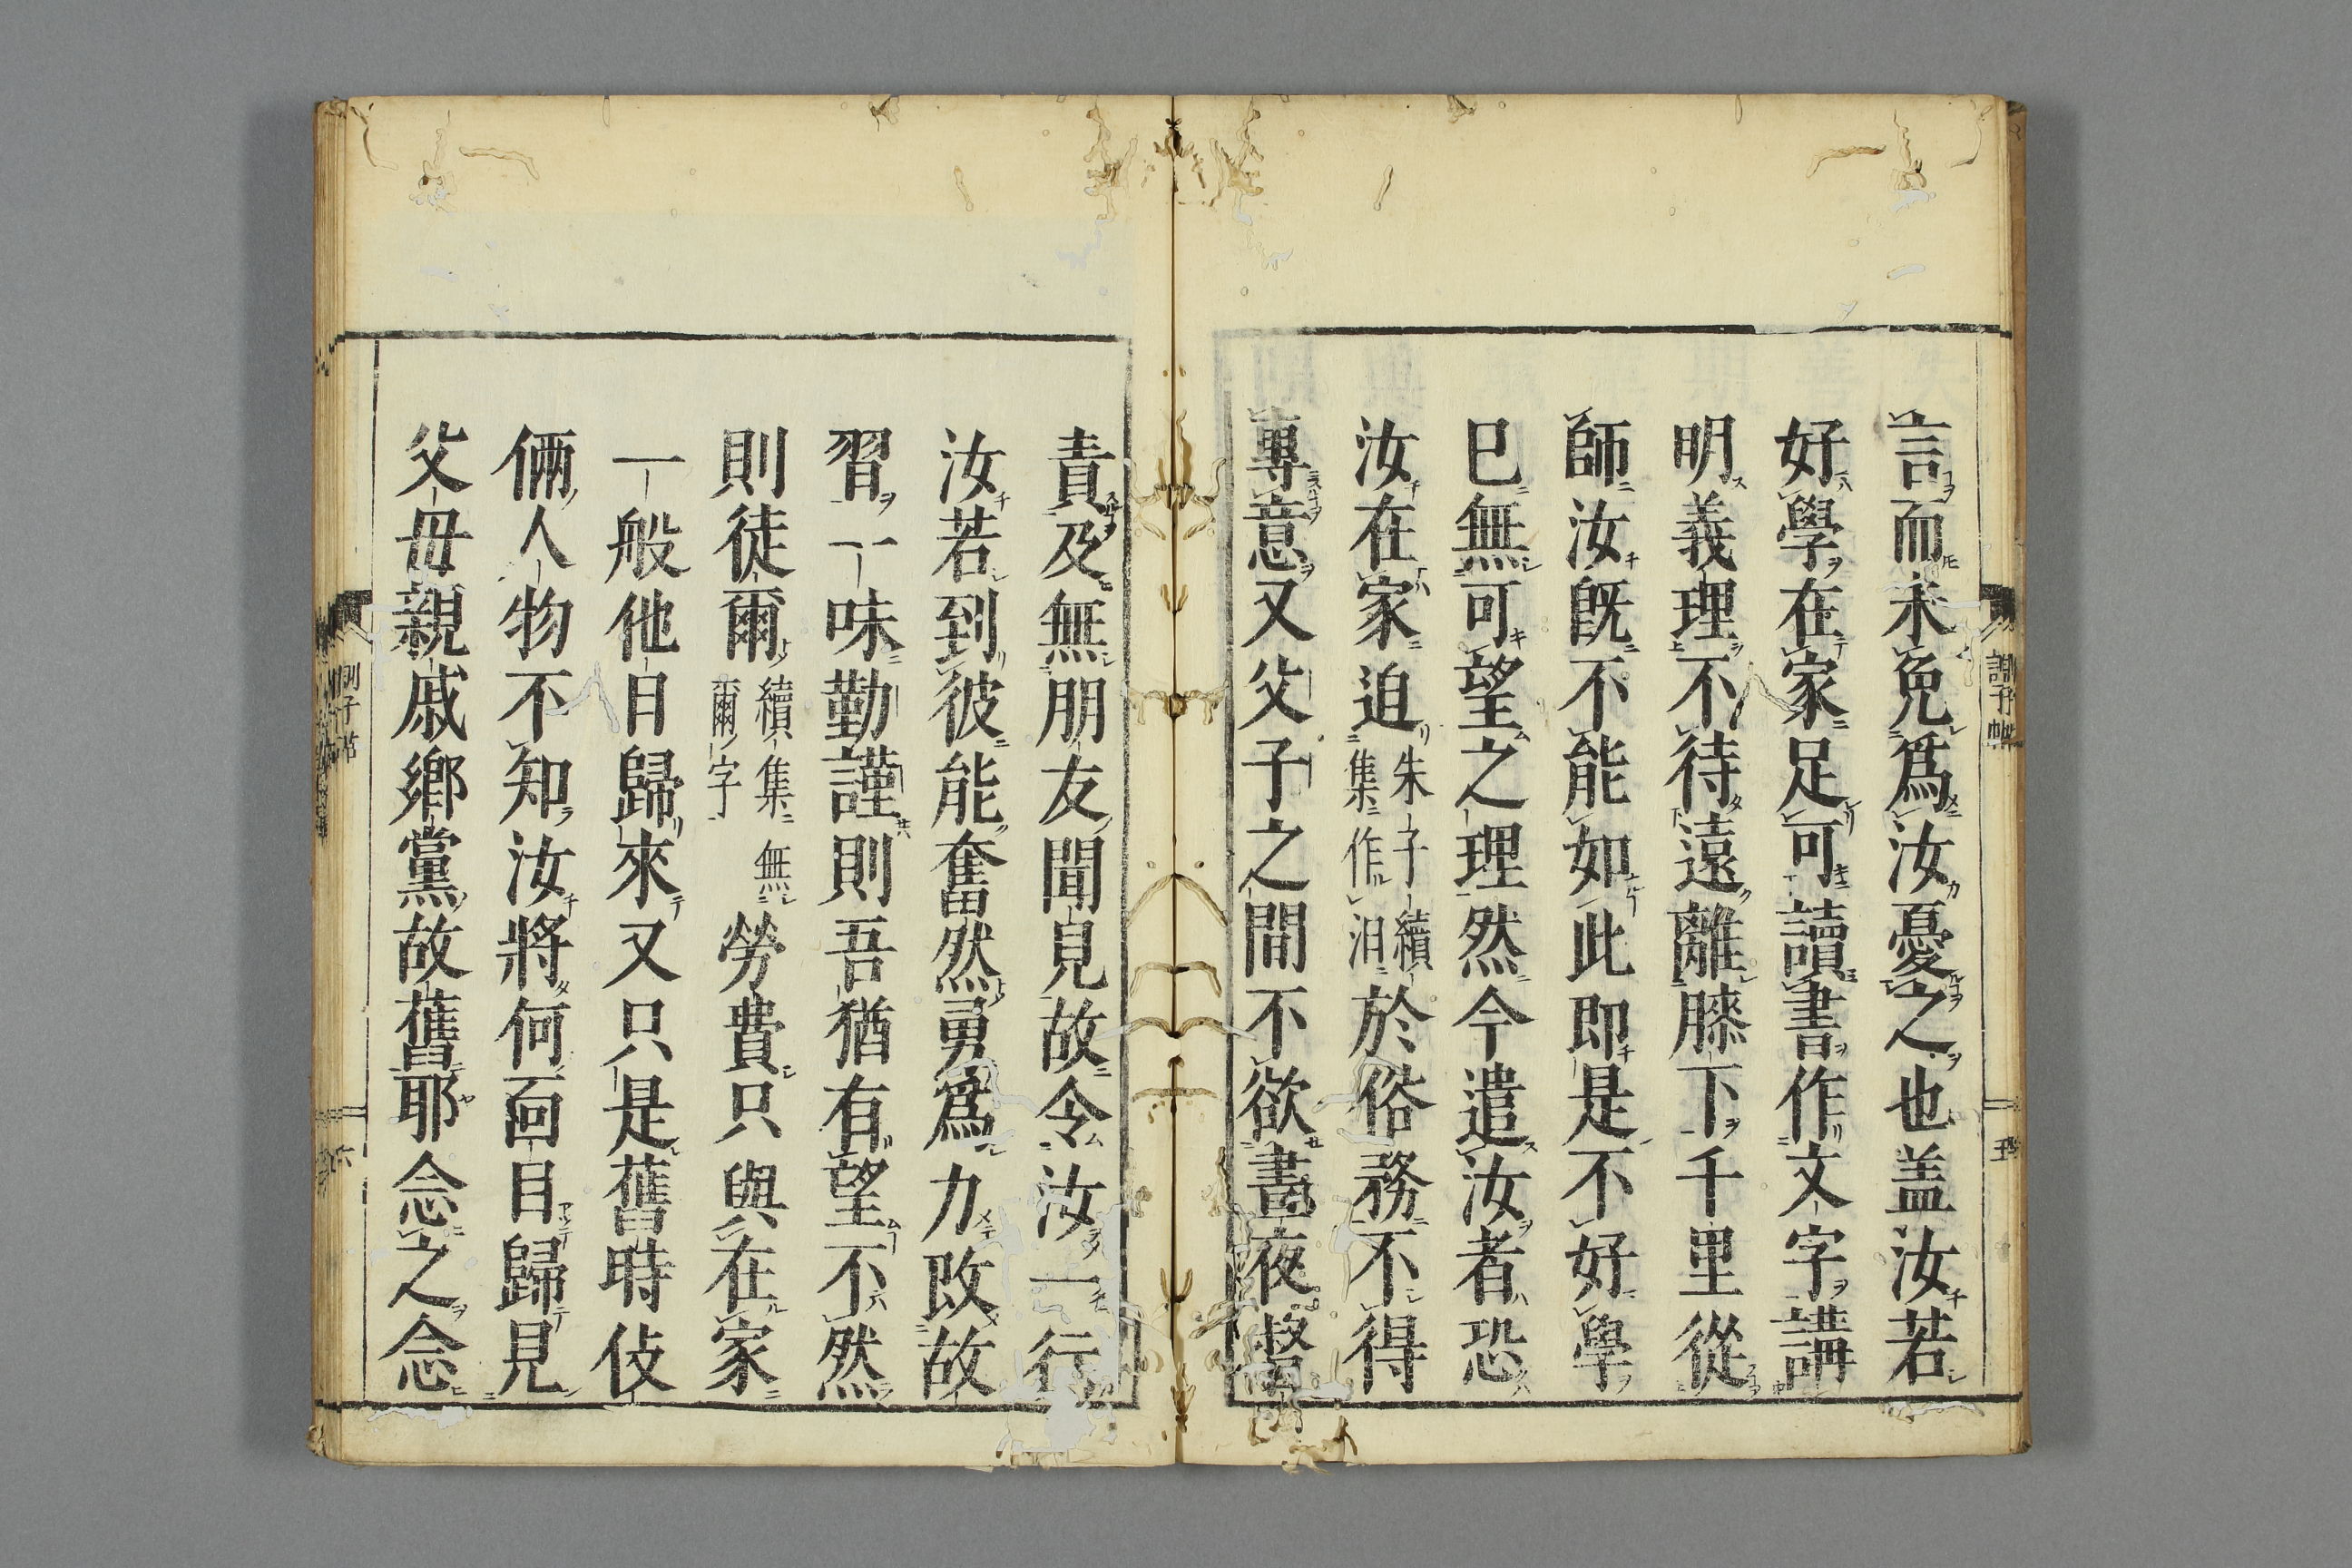 言而未免爲汝憂之也盖汝若
好學在家足可讀書作文字講
明義理不待遠離膝下千里從
師汝既不能如此即是不好學
已無可望之理然今遣汝者恐
汝在家迫朱子續集作汨於俗務不得
專意又父子之間不欲晝夜督
責及無朋友聞見故令汝一行
汝若到彼能奮然勇爲力改故
習一味勤謹則吾猶有望不然
則徒爾續集無爾字勞費只與在家
一般他日歸來又只是舊時伎
倆人物不知汝將何面目歸見
父母親戚鄉黨故舊耶念之念